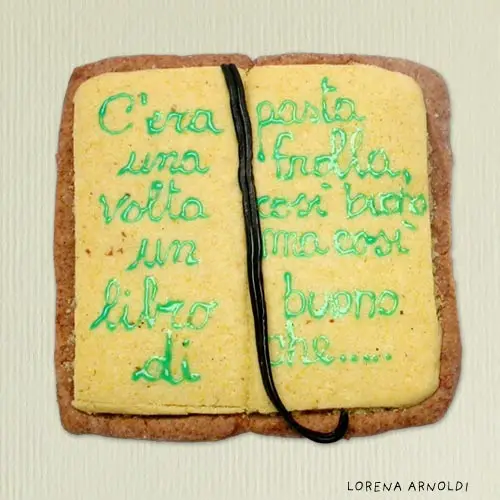 C'era
una
volta
un
libro
di
pasta
frolla,
così buono
ma così
buono
che.....
LORENA ARNOLDI